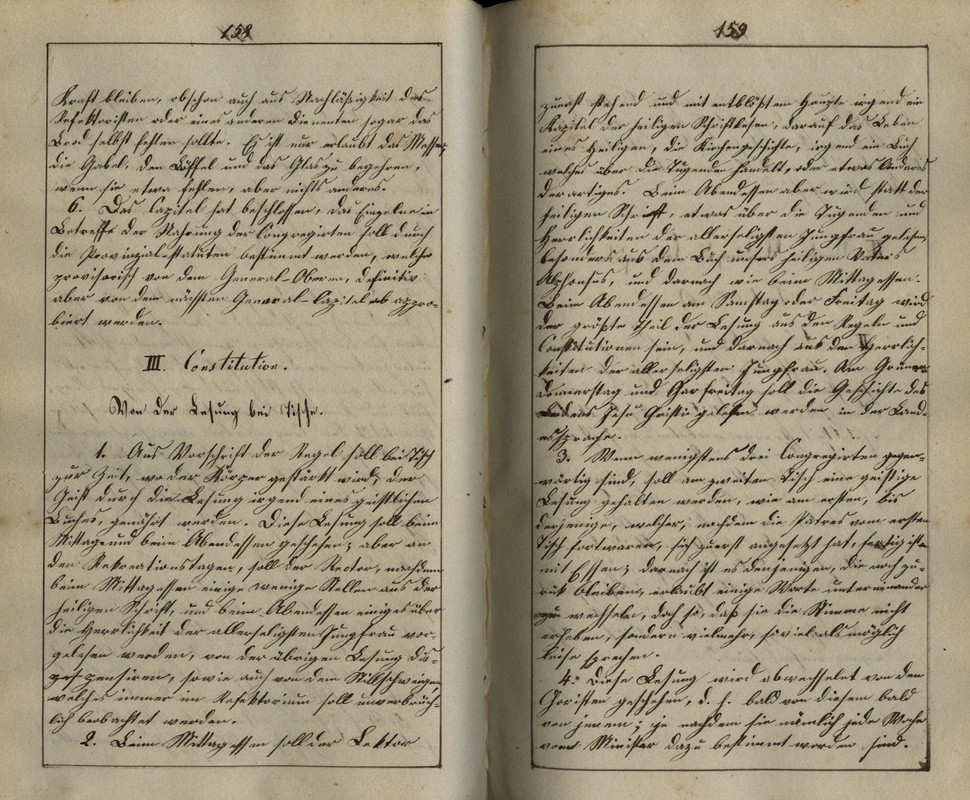 158
Kraft bleiben, obschon auch aus Nachläßigkeit des
Refektoristen oder eines anderen Dienenten sogar das
Brod selbst fehlen sollte. Es ist nur erlaubt das Messer,
die Gabel, den Löffel und das Glas zu begehren,
wenn sie etwa fehlen, aber nichts anderes.
6. Das Capitel hat beschlossen, das Einzelne in
Betreffs der Nahrung der Congregirten soll durch
die Provinzial-Statuten bestimmt werden, welche
provisorisch von dem General-Obern, definitiv
aber von dem nächsten General-Capitel appro-
biert werden.
III. Constitution.
Von der Lesung bei Tische.
1. Aus Vorschrift der Regel soll bei Tisch
zur Zeit, wo der Körper gestärkt wird, der
Geist durch die Lesung irgend eines geistlichen
Buches, genährt werden. Diese Lesung soll beim
Mittag- und beim Abendessen geschehen; aber an
den Rekreationstagen, soll der Rector, nachdem
beim Mittagessen einige wenige Stellen aus der
heiligen Schrift, und beim Abendessen einiges über
die Herrlichkeit der allerseligsten Jungfrau vor-
gelesen worden, von der übrigen Lesung dis-
pensiren, sowie auch von dem Stillschweigen
welches immer im Refektorium soll unverbrüch-
lich beobachtet werden.
2. Beim Mittagessen soll der Lektor
159
zuerst stehend und mit entblößtem Haupte irgend ein
Kapitel der heiligen Schrift lesen, darauf das Leben
eines Heiligen, die Kirchengeschichte, irgend ein Buch
welches über die Tugenden handelt, oder etwas Anderes
derartiges. Beim Abendessen aber wird statt der
heiligen Schrift, etwas über die Tugenden und
Herrlichkeiten der allerseligsten Jungfrau gelesen,
besonders aus dem Buch unsers heiligen Vaters
Alphonsus, und darnach wie beim Mittagessen.
Beim Abendessen am Samstag oder Freitag wird
der größte Theil der Lesung aus den Regeln und
Constitutionen sein, und darnach aus den Herrlich-
keiten der allerseligsten Jungfrau. Am Grünen-
Donnerstag und Charfreitag soll die Geschichte des
Leidens Jesu Christi gelesen werden in der Land-
essprache.
3. Wenn wenigstens drei Congregirten gegen-
wärtig sind, soll am zweiten Tisch eine geistige
Lesung gehalten werden, wie am ersten, bis
derjenige, welcher, nachdem die Patres vom ersten
Tisch fort waren, sich zuerst angesetzt hat, fertig ist
mit Essen; darnach ist es denjenigen, die noch zu-
rük bleiben, erlaubt einige Worte untereinander
zu wechseln, doch so, daß sie die Stimme nicht
erheben, sondern vielmehr, so viel als möglich
leise sprechen.
4. Diese Lesung wird abwechselnd von den
Choristen geschehen, d. h. bald von diesem bald
von jenem; je nachdem sie nämlich jede Woche
vom Minister dazu bestimmt worden sind.